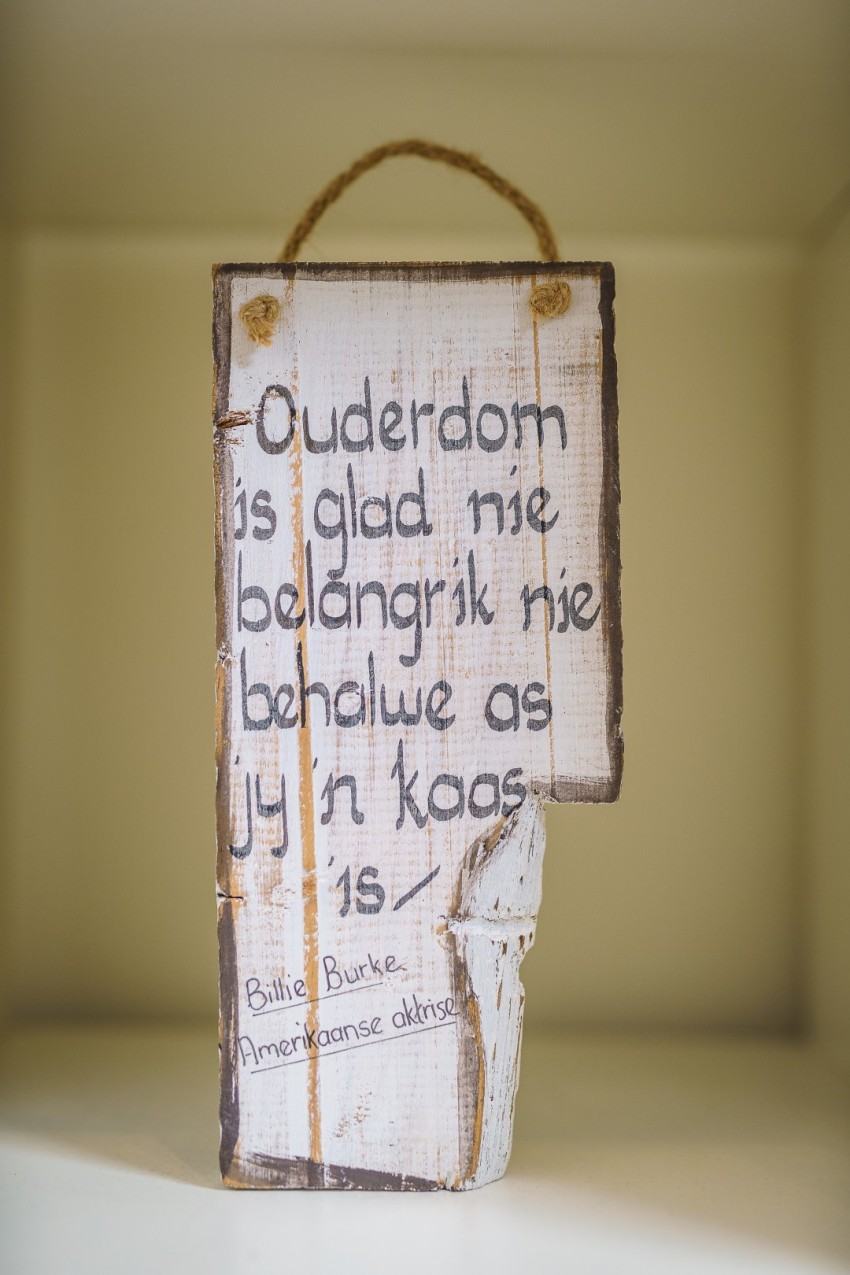 Ouderdom
is glad nie
belangrik nie
behalwe as
jy 'n kaas
is/
Billie Burke
Amerikaanse aktrise